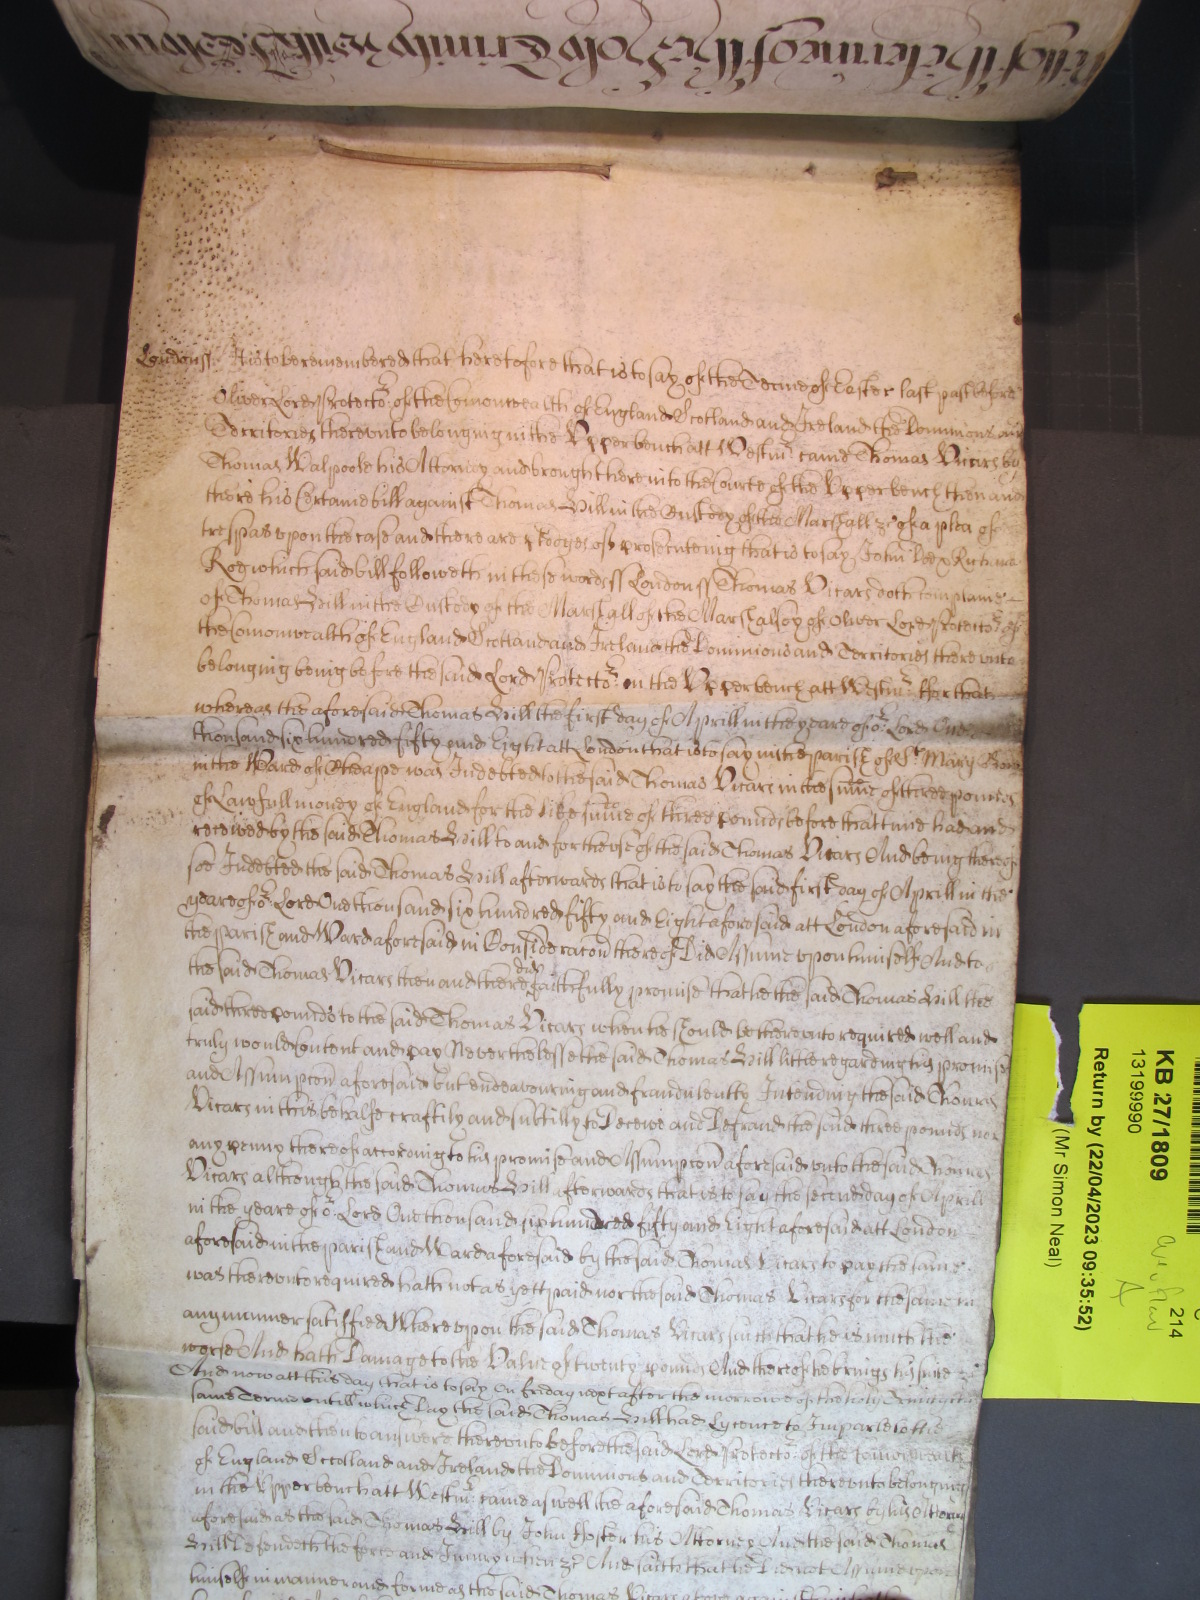 of the Terme of the Holy Trinity
London ss It is to be remembered that heretofore that is to say of the Terme of Easter last past before
Oliver Lord Protector of the Comonwealth of England Scotland and Ireland the Dominions and
Territories thereunto belonging in the Upper bench att Westmr came Thomas Vicars by
Thomas Walpoole his Attorney and brought here into the Courte of the Upper bench then and
there his Certaine bill against Thomas Hill in the Custody of the Marshall &c of a plea of
trespas upon the case and there are pledges of prosecuteing that is to say John Doe & Richard
Roe which said bill followeth in these words ss London ss Thomas Vicars doth complaine
of Thomas Hill in the Custody of the Marshall of the Marshalsey of Oliver Lord Protector of
the Comonwealth of England Scotland and Ireland the Dominions and Territories thereunto
belonging being before the said Lord Protector in the Upper bench att Westmr For that
whereas the aforesaid Thomas Hill the first day of Aprill in the yeare of or Lord One
thousand six hundred fifty and Eight att London that is to say in the parish of St Mary Bow
in the Ward of Cheape was Indebted to the said Thomas Vicars in the sume of three pounds
of Lawfull money of England for the like sume of three pounds before that time had and
received by the said Thomas Hill to and for the use of the said Thomas Vicars And being thereof
soe Indebted the said Thomas Hill afterwards that is to say the said first day of Aprill in the
yeare of or Lord One thousand six hundred fifty and Eight aforesaid att London aforesaid in
the parish and Ward aforesaid in Consideracon thereof Did Assume upon himselfe And to
the said Thomas Vicars then and there did faithfully promise that he the said Thomas Hill the
said three pounds to the said Thomas Vicars when he should be thereunto required well and
truly would Content and pay Neverthelesse the said Thomas Hill little regarding his promise
and Assumpcon aforesaid but endeavouring and fraudulently Intending the said Thomas
Vicars in this behalfe craftily and subtilly to Deceive and Defraud the said three pounds nor
any penny thereof according to his promise and Assumpcon aforesaid unto the said Thomas
Vicars although the said Thomas Hill afterwards that is to say the second day of Aprill
in the yeare of or Lord One thousand six hundred fifty and Eight aforesaid att London
aforesaid in the parish and Ward aforesaid by the said Thomas Vicars to pay the same
was thereunto required hath not as yett paid nor the said Thomas Vicars for the same in
any manner satisfied Whereupon the said Thomas Vicars saith that he is much the
worse And hath Damage to the Value of twenty pounds And thereof he brings his suite &c
And now att this day that is to say On Friday next after the morrowe of the holy Trinity
same Terme untill which Day the said Thomas Hill had Lycence to Imparle to the
said bill and then to answere thereunto before the said Lord Protector of the Comonwealth
of England Scotland and Ireland the Dominions and Territories thereunto belonging
in the Upper bench att Westmr came aswell the aforesaid Thomas Vicars by his Attorney
aforesaid as the said Thomas Hill by John his Attorney And the said Thomas
Hill Defendeth the force and Injury when &c And saith that he Did not Assume upon
himselfe in manner and forme as the said Thomas Vicars above against
KB 27/1809
13199990
Return by (22/04/2023 09:35:52)
(Mr Simon Neal)
214